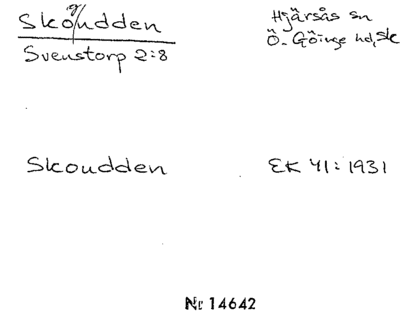 Skogudden
Svenstorp 2:8
Hjärsås sn
Ö. Göinge hd, Sk
Skoudden
EK 41: 1931
Nr 14642